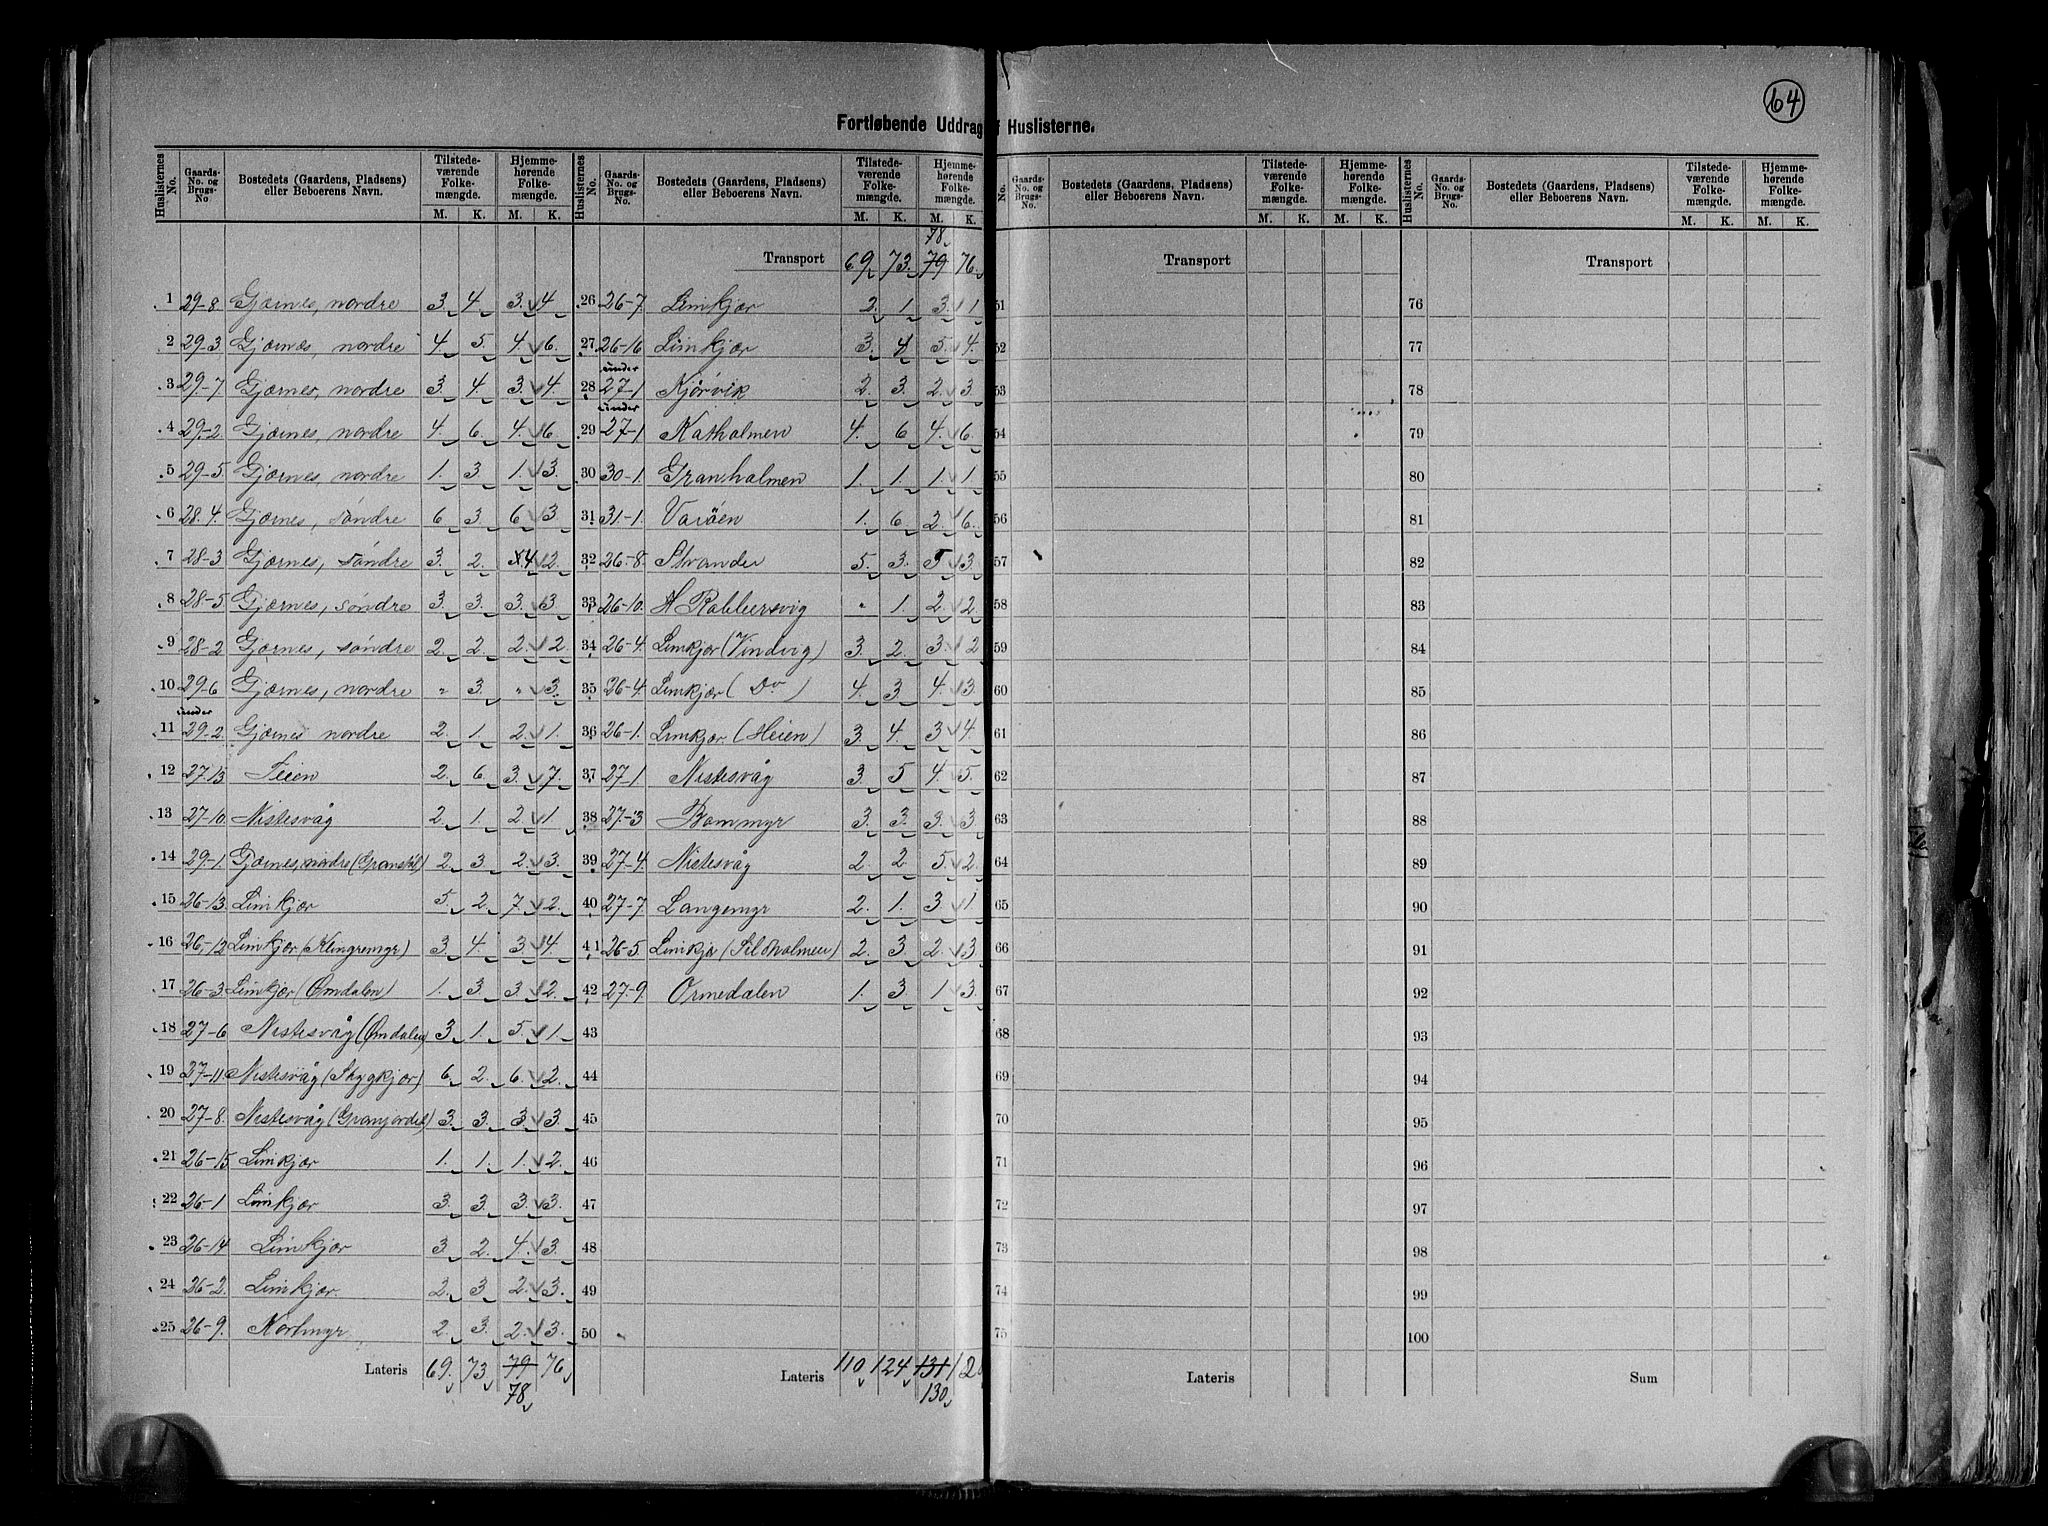 64
Fortløbende Uddrag f Huslisterne.
Huslisternes No. Gaards-No. og Brugs-No Bostedets (Gaardens, Pladsens) eller Beboerens Navn. Tilstedeværende Folkemængde. Hjemmehørende Folkemængde. M. K. M. K.
1 29-8. Gjærnes, nordre 3. 4. 3. 4
2 29-3. Gjærnes, nordre 4. 5. 4. 6.
3 29-7. Gjærnes, nordre 3. 4. 3. 4.
4 29-2. Gjærnes, nordre 4. 6. 4. 6.
5 29-5. Gjærnes, nordre 1. 3 1. 3.
6 28-4. Gjærnes, söndre 6 3 6 3
7 28-3 Gjærnes, söndre 3. 2. 4 2.
8 28-5. Gjærnes, söndre 3. 3. 3. 3.
9 28-2 Gjærnes, söndre 2. 2. 2. 2.
10 29-6 Gjærnes, nordre " 3. " 3.
under
11 29-2. Gjærnes nordre 2. 1. 2. 1.
12 27-13 Feien 2. 6. 3. 7.
13 27-10. Nistesvåg 2. 1. 2. 1
14 29-1. Gjærnes, nordre 2. 3. 2. 3.
15 26-13. Limkjær 5. 2. 7. 2.
16 26-12 Limkjær (Klingremyr) 3. 4. 3. 4.
17 26-3 Limkjær (Omdalen) 1. 3. 3. 2.
18 27-6 Nistesvåg (Omdalen) 3. 1. 5. 1.
19 27-11 Nistesvåg (Skygkjær) 6. 2. 6. 2.
20 27-8. Nistesvåg (Granjordet) 3. 3. 3. 3.
21 26-15 Limkjær 1. 1. 1. 2.
22 26-1 Limkjær 3. 3. 3. 3.
23 26-14 Limkjær 3. 2. 4. 3.
24 26-2. Limkjær. 2. 3. 2. 3.
25 26-9. 2. 3. 2. 3.
Lateris 69. 73 79 76
78
Huslisternes No. Gaards-No. og Brugs-No. Bostedets (Gaardens, Pladsens) eller Beboerens Navn. Tilstedeværende Folkemængde. Hjemmehørende Folkemængde. M. K. M. K.
78
Transport 69 73. 79 76.
26 26-7. Limkjær 2. 1. 3. 1
27 26-16 Limkjær 3. 4 5. 4.
under
28 27-1 Kjörvik 2. 3. 2. 3.
under
29 27-1 Katholmen 4. 6 4. 6
30 30-1. Granholmen 1. 1. 1. 1
31 31-1. Varöen 1. 6. 2. 6.
32 26-8. Strander 5. 3. 5 3
33 26-10. " 1. 2. 2.
34 26-4. Limkjær (Vindvig) 3. 2. 3 2
35 26-4. Limkjær (Do) 4. 3 4. 3.
36 26-1. Limkjær. (Heien) 3. 4. 3 4.
37 27-1 Nistesvåg 3. 5 4. 5.
38 27-3 Bommyr 3. 3. 3. 3
39 27-4. Nistesvåg 2. 2. 5. 2.
40 27-7 Langemyr 2. 1. 3 1
41 26-5. Limkjæ (Sildholmen) 2. 3. 2. 3.
42 27-9. Ormedalen 1. 3. 1 3.
43
44
45
46
47
48
49
50
Lateris 110 124 131
130
No. Gaards-No. og Brugs-No. Bostedets (Gaardens, Pladsens) eller Beboerens Navn. Tilstedeværende Folkemængde. Hjemmehørende Folkemængde. M. K. M. K.
Transport
51
52
53
54
55
56
57
58
59
60
61
62
63
64
65
66
67
68
69
70
71
72
73
74
75
Lateris
Huslisternes No. Gaards-No. og Brugs-No. Bostedets (Gaardens, Pladsens) eller Beboerens Navn. Tilstedeværende Folkemængde. Hjemmehørende Folkemængde. M. K. M. K.
Transport
76
77
78
79
80
81
82
83
84
85
86
87
88
89
90
91
92
93
94
95
96
97
98
99
100
Sum